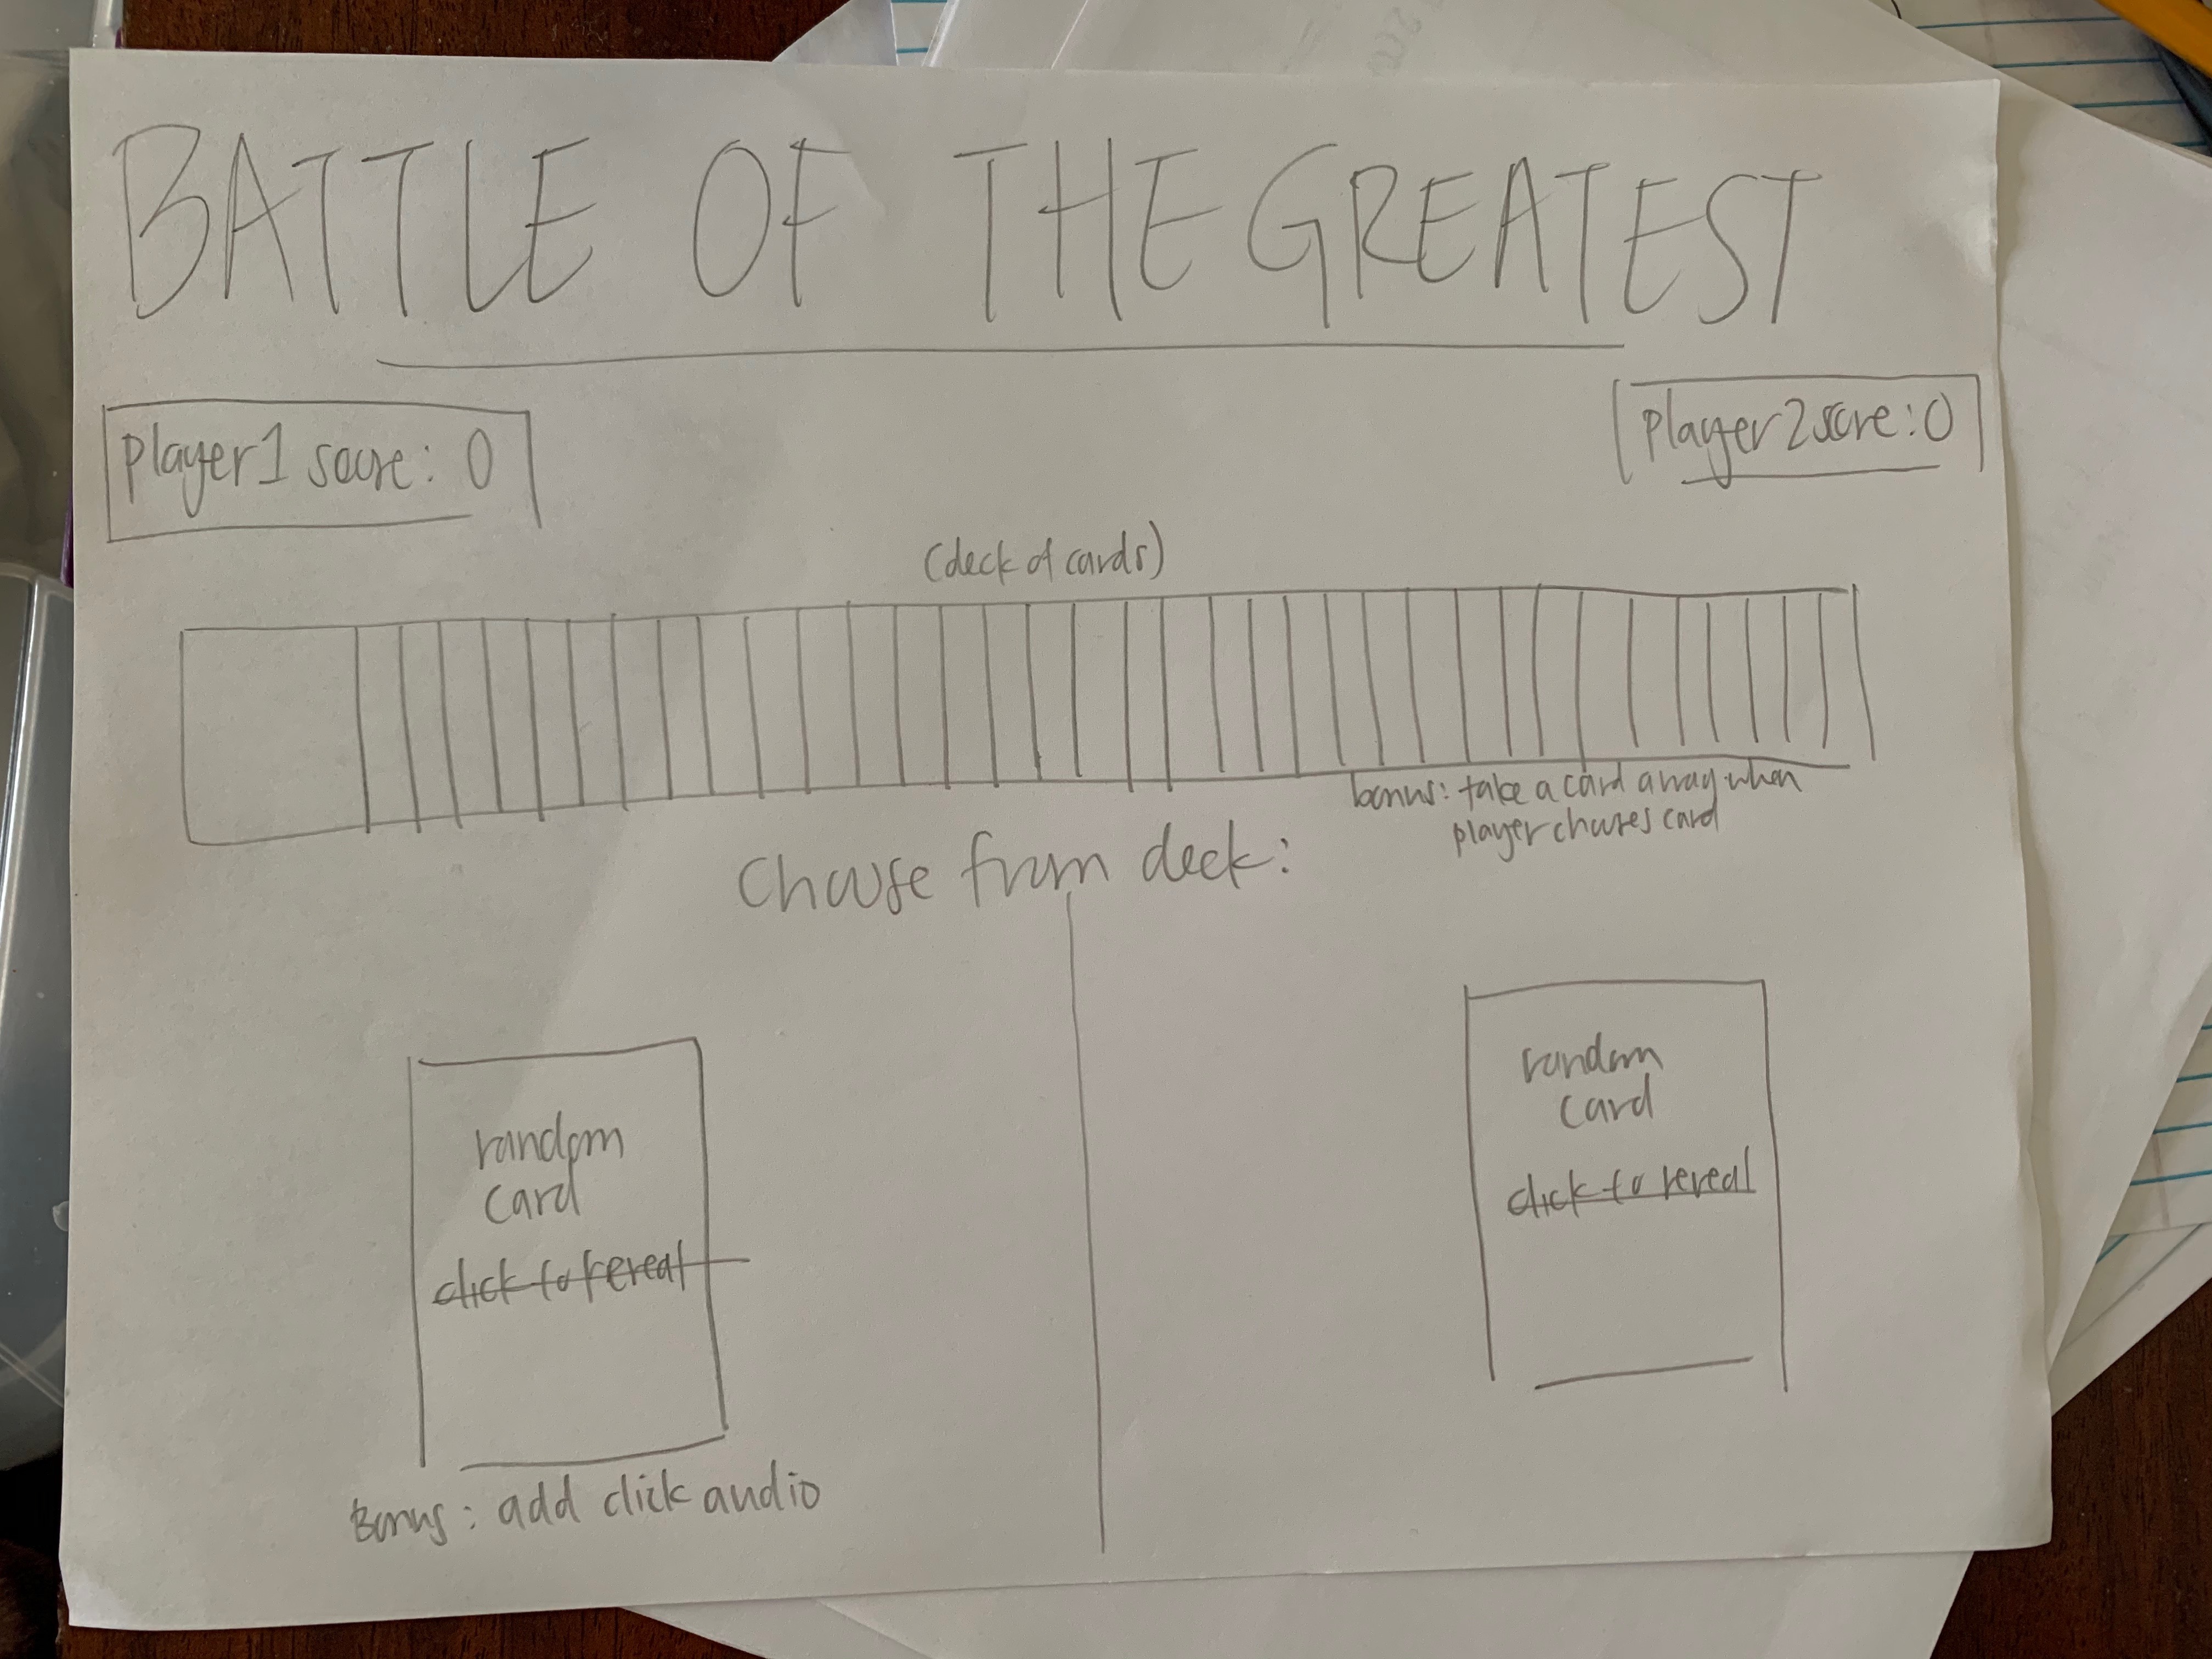 BATTLE OF THE GREATEST
player1 score: 0
player2 score: 0
(deck of cards)
bonus: take a card away when
player chooses card
Choose from deck:
random
card
click to reveal
random
card
click to reveal
Bonus: add click audio